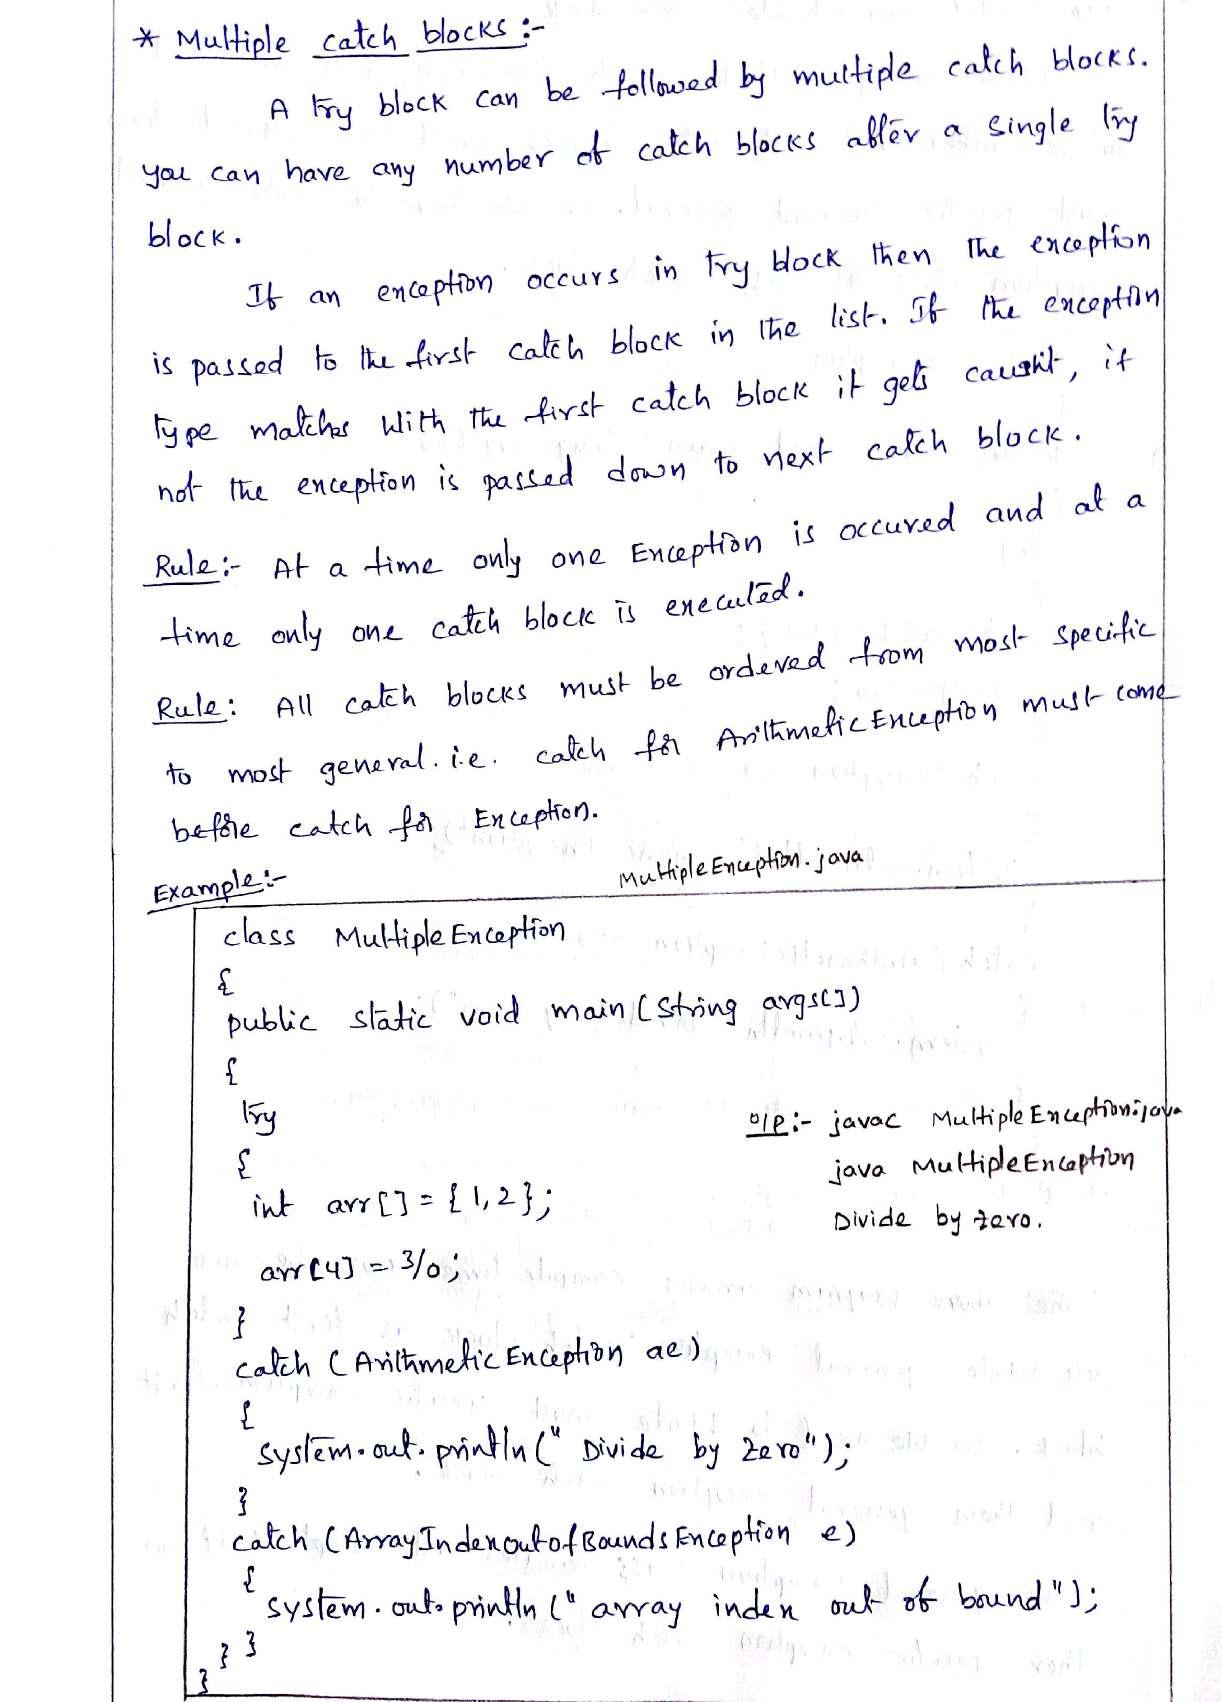 * Multiple catch blocks :-
A try block can be followed by multiple catch blocks.
you can have any number of catch blocks after a single try
block.
If an exception occurs in try block then the exception
is passed to the first catch block in the list. If the exception
type matches with the first catch block it gets caught, if
not the exception is passed down to next catch block.
Rule:- At a time only one Exception is occured and at a
time only one catch block is executed.
Rule: All catch blocks must be ordered from most specific
to most general. i.e. catch for ArithmeticException must come
before catch for Exception.
Example:-
MultipleException.java
class MultipleException
{
public static void main(String args[])
{
try
{
int arr[] = {1,2};
arr[4] = 3/0;
}
catch (ArithmeticException ae)
{
system.out.println(" Divide by Zero");
}
catch (ArrayIndexoutofBoundsException e)
{
system.out.println (" array index out of bound");
} }
}
o/p:- javac MultipleException.java
java MultipleException
Divide by zero.